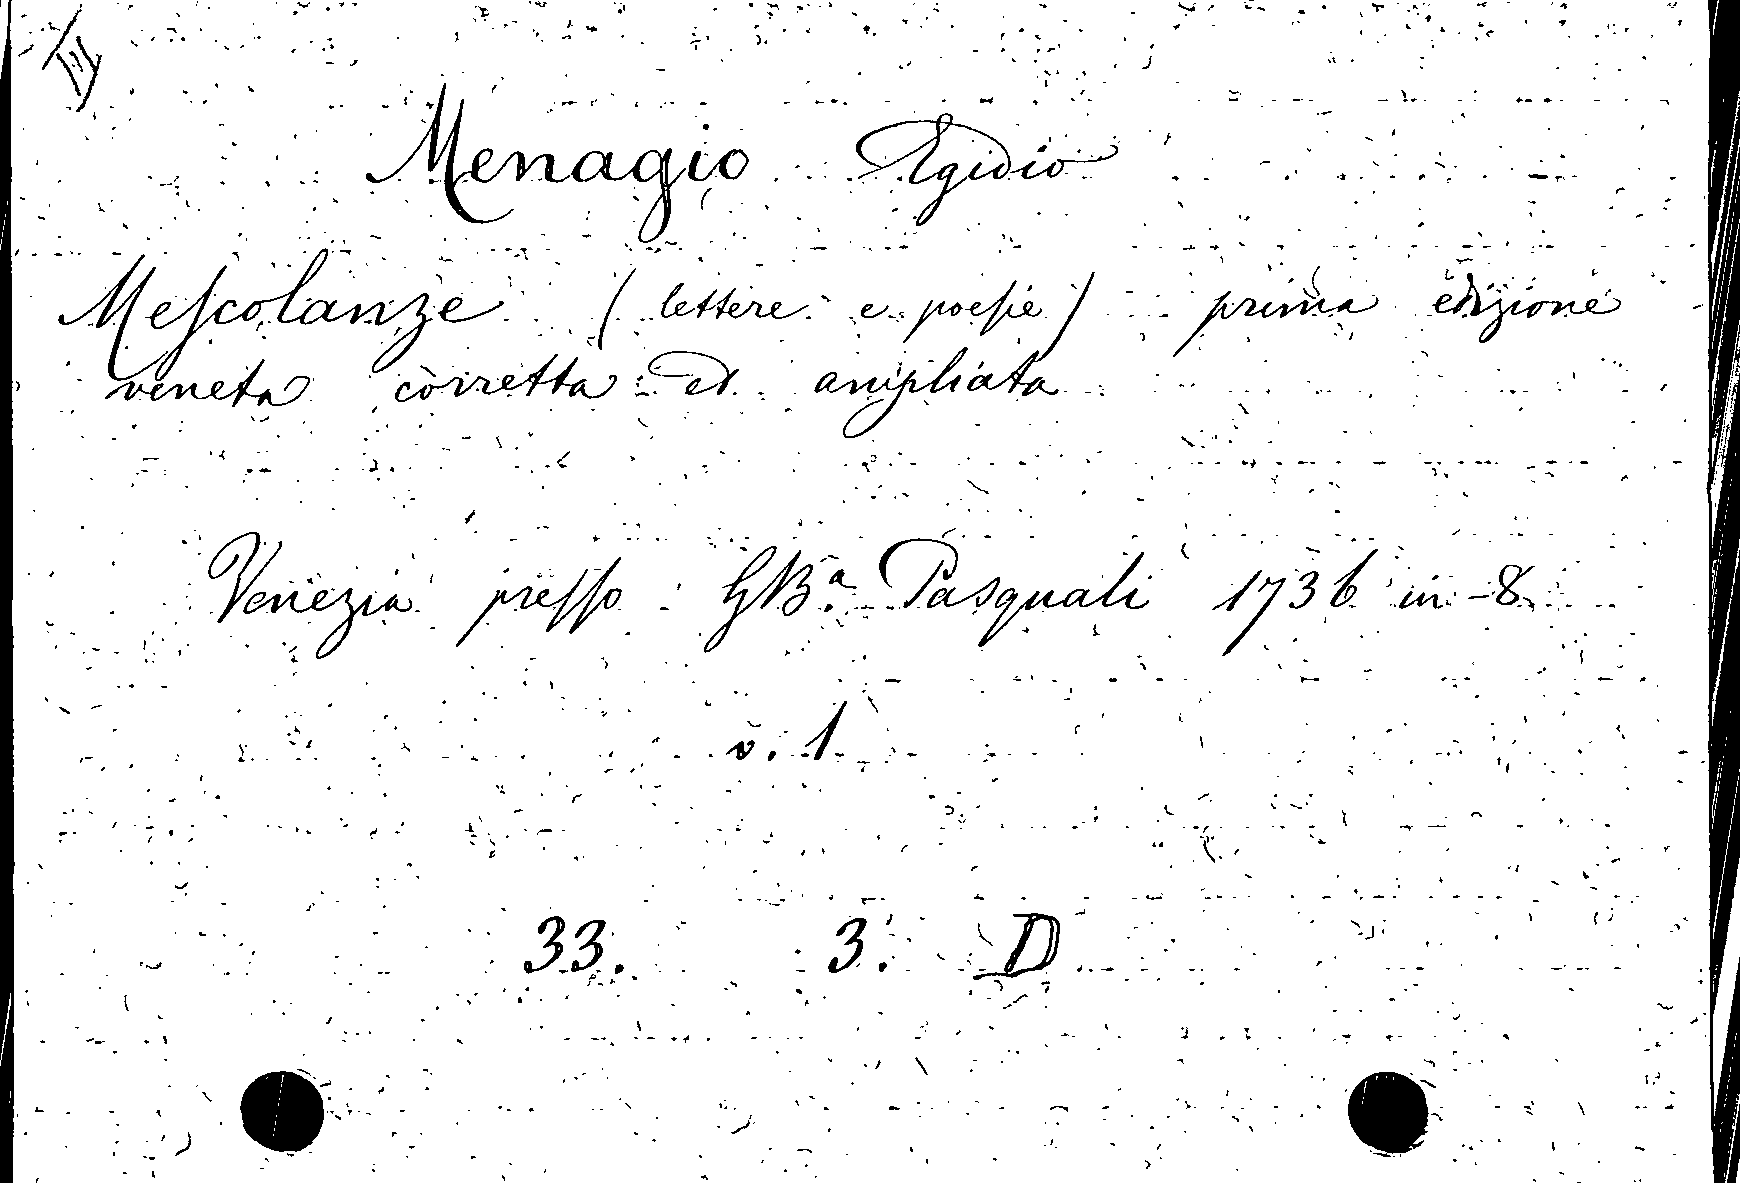 Menagio Egidio
Meſcolanze (lettere e poeſie) prima edizione
veneta corretta ed ampliata
Venezia preſſo GB.ª Pasquali 1736 in-8.
v. 1
33. 3. D